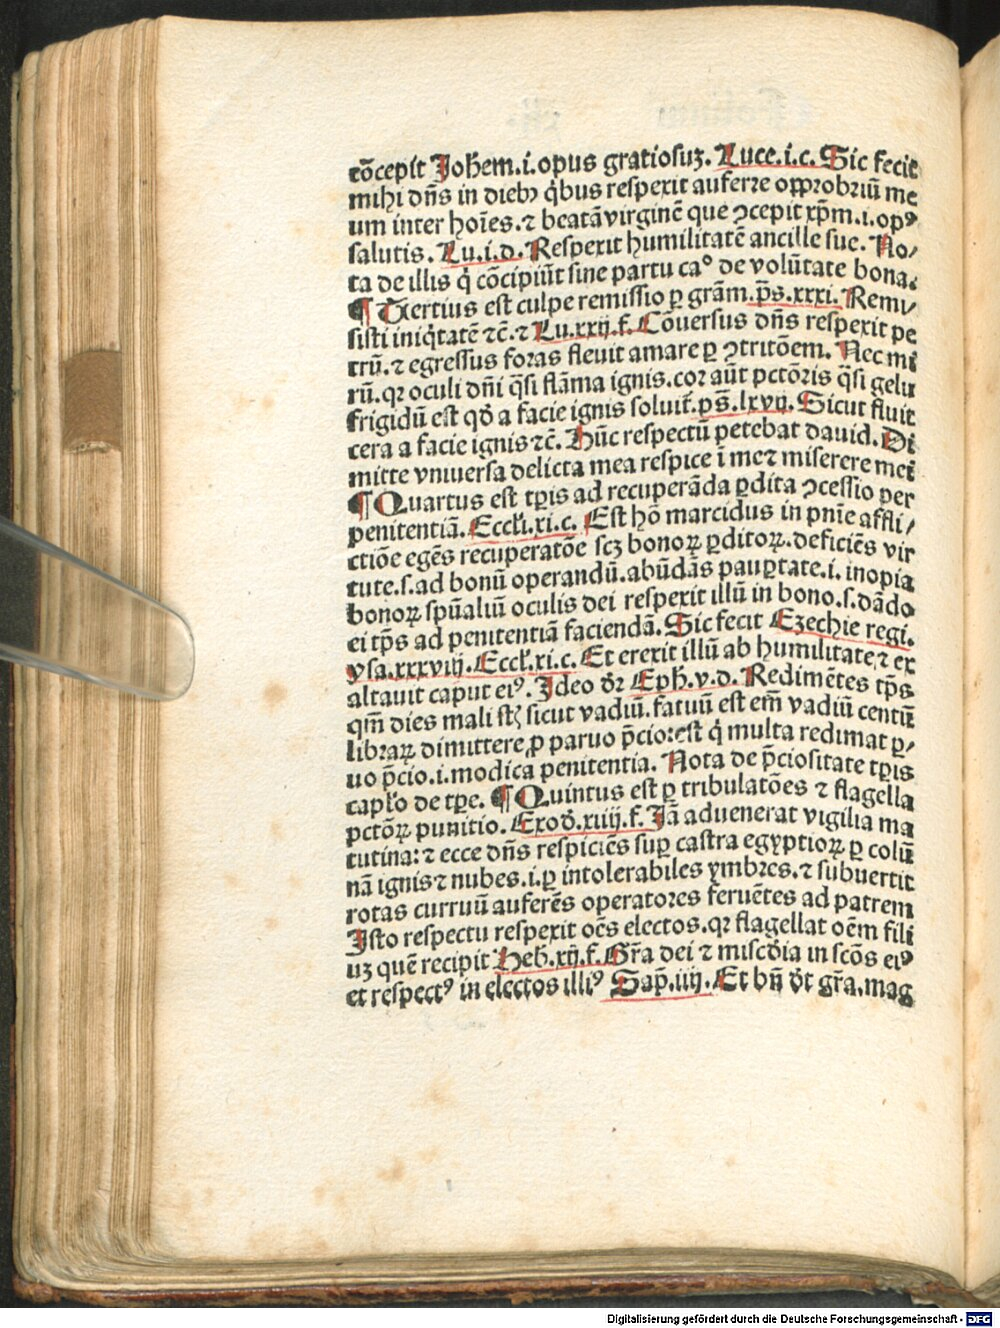 cõcepit Joħem.i.opus gratiosuꝫ. Luce.i.c. Sic fecit
mihi dñs in diebꝫ q̇bus respexit auferre opprobriũ me
um inter hoĩes.⁊ beatã virginẽ que ↄcepit xp̃m.i.opꝰ
salutis. Lu.i.d. Respexit humilitatẽ ancille sue. No/
ta de illis q̇ cõcipiũt sine partu ca° de volũtate bona.
¶ Tertius est culpe remissio ꝑ grãm.ps̃.xxxi. Remi/
sisti iniq̇tatẽ ⁊c̃.⁊ Lu.xxij.f. Cõuersus dñs respexit pe
trũ.⁊ egressus foras fleuit amare ꝑ ↄtritõem. Nec mi
rũ.qꝛ oculi dñi q̃si flãma ignis.cor aũt pctõris q̃si gelu
frigidũ est qð a facie ignis soluit̃.ps̃.lxvij. Sicut fluit
cera a facie ignis ⁊c̃. Hũc respectũ petebat dauid. Di
mitte vniuersa delicta mea respice ĩ me ⁊ miserere mei
¶ Quartus est tp̃is ad recuperãda ꝑdita ↄcessio per
penitentiã. Eccĺi.xi.c. Est hõ marcidus in pñie affli/
ctiõe egẽs recuperatõe scꝫ bonoꝝ ꝑditoꝝ.deficiẽs vir
tute.s.ad bonũ operandũ.abũdãs pauꝑtate.i. inopia
bonoꝝ spũaliũ oculis dei respexit illũ in bono.s.dãdo
ei tp̃s ad penitentiã faciendã. Sic fecit Ezechie regi.
ysa.xxxviij. Eccĺ.xi.c. Et erexit illũ ab humilitate,⁊ ex
altauit caput eiꝰ. Ideo ðr Epħ.v.d. Redimẽtes tp̃s
qm̃ dies mali st̃ sicut vadiũ.fatuũ est em̃ vadiũ centũ
libraꝝ dimittere ꝓ paruo p̃cio:est q̇ multa redimat ꝑ/
uo p̃cio.i.modica penitentia. Nota de p̃ciositate tp̃is
capĺo de tp̃e. ¶ Quintus est ꝑ tribulatões ⁊ flagella
pctõꝝ punitio. Exoð.xiiij.f. Jã aduenerat vigilia ma
tutina:⁊ ecce dñs respiciẽs suꝑ castra egyptioꝝ ꝑ colũ
nã ignis ⁊ nubes.i.ꝑ intolerabiles ymbres.⁊ subuertit
rotas curruũ auferẽs operatores feruẽtes ad patrem
Isto respectu respexit oẽs electos.qꝛ flagellat oẽm fili
uꝫ quẽ recipit Heb.xij.f. Gr̃a dei ⁊ misc̃dia in scõs eiꝰ
et respectꝰ in electos illiꝰ Sap̃.iiij. Et bñ ðt gr̃a.mag
Digitalisierung gefördert durch die Deutsche Forschungsgemeinschaft - DFG